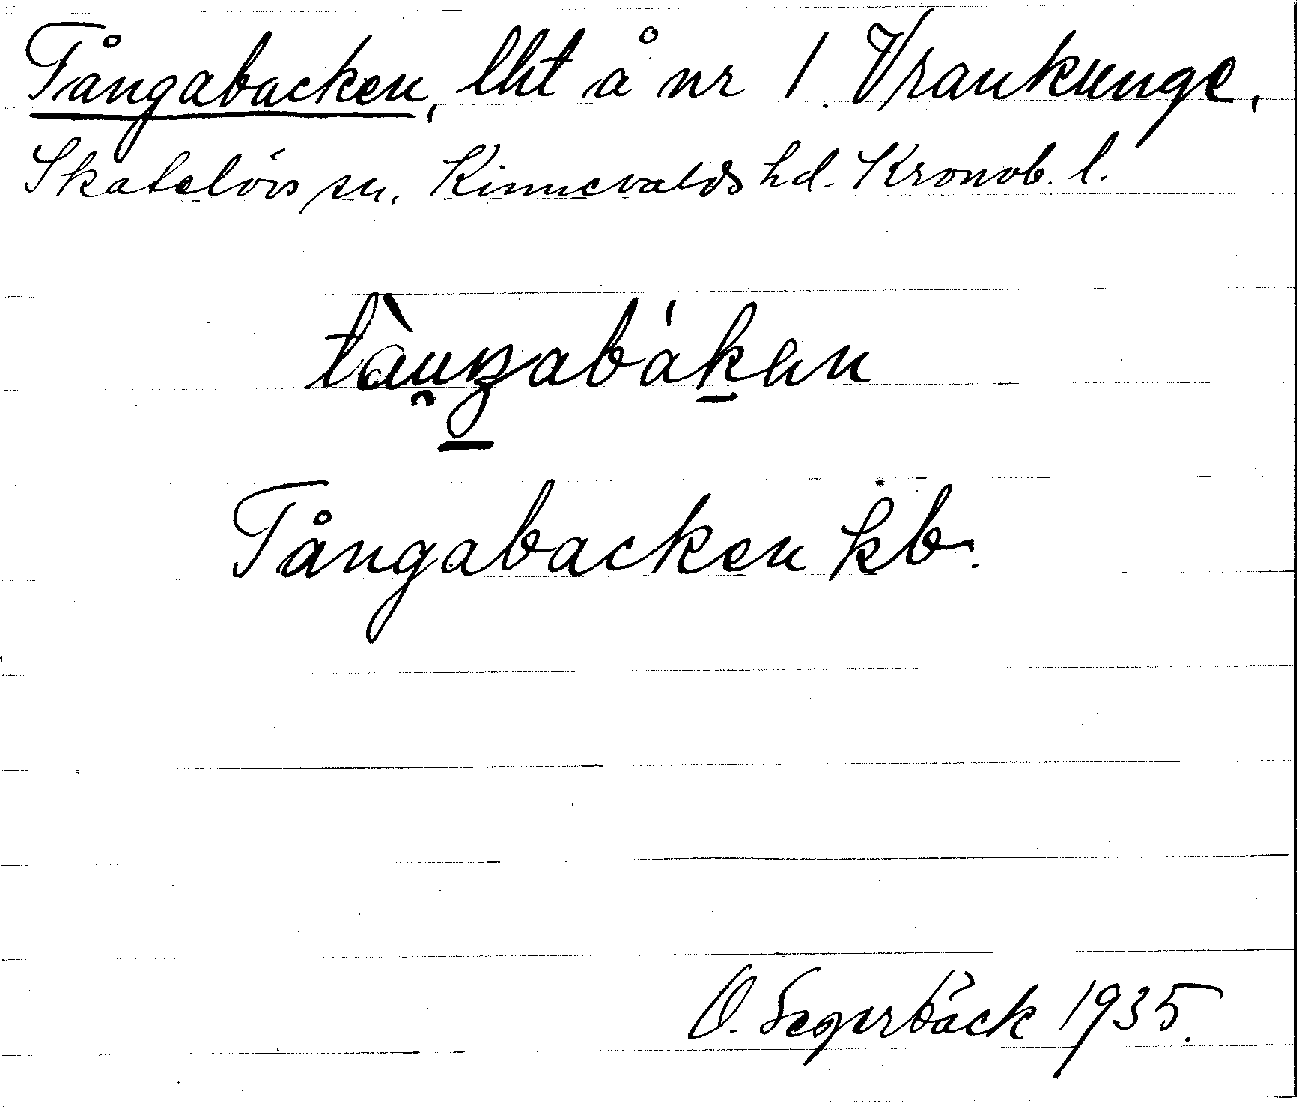 Tångabacken, lht å nr 1 Vrankunge,
Skatelövs sn. Kinnevalds hd. Kronob. l.
tàu̯ŋabák̠ən
Tångabacken kb.
O. Segerbäck 1935.